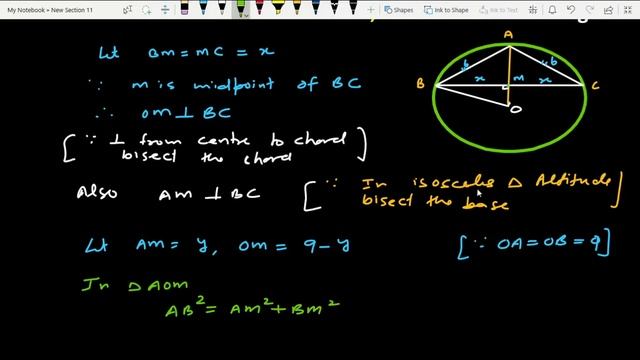 My Notebook » New Section 11
Ink to Shape
Ink to Text
Let BM = MC = x
∵ M is midpoint of BC
∴ OM ⊥ BC
[∵ ⊥ from centre to chord bisect the chord]
Also AM ⊥ BC [∵ In isosceles Δ Altitude bisect the base]
Let AM = y, OM = 9-y [∵ OA = OB = 9]
In ΔAOM
AB² = AM² + BM²
A
6
6
B
x
M
x
C
O